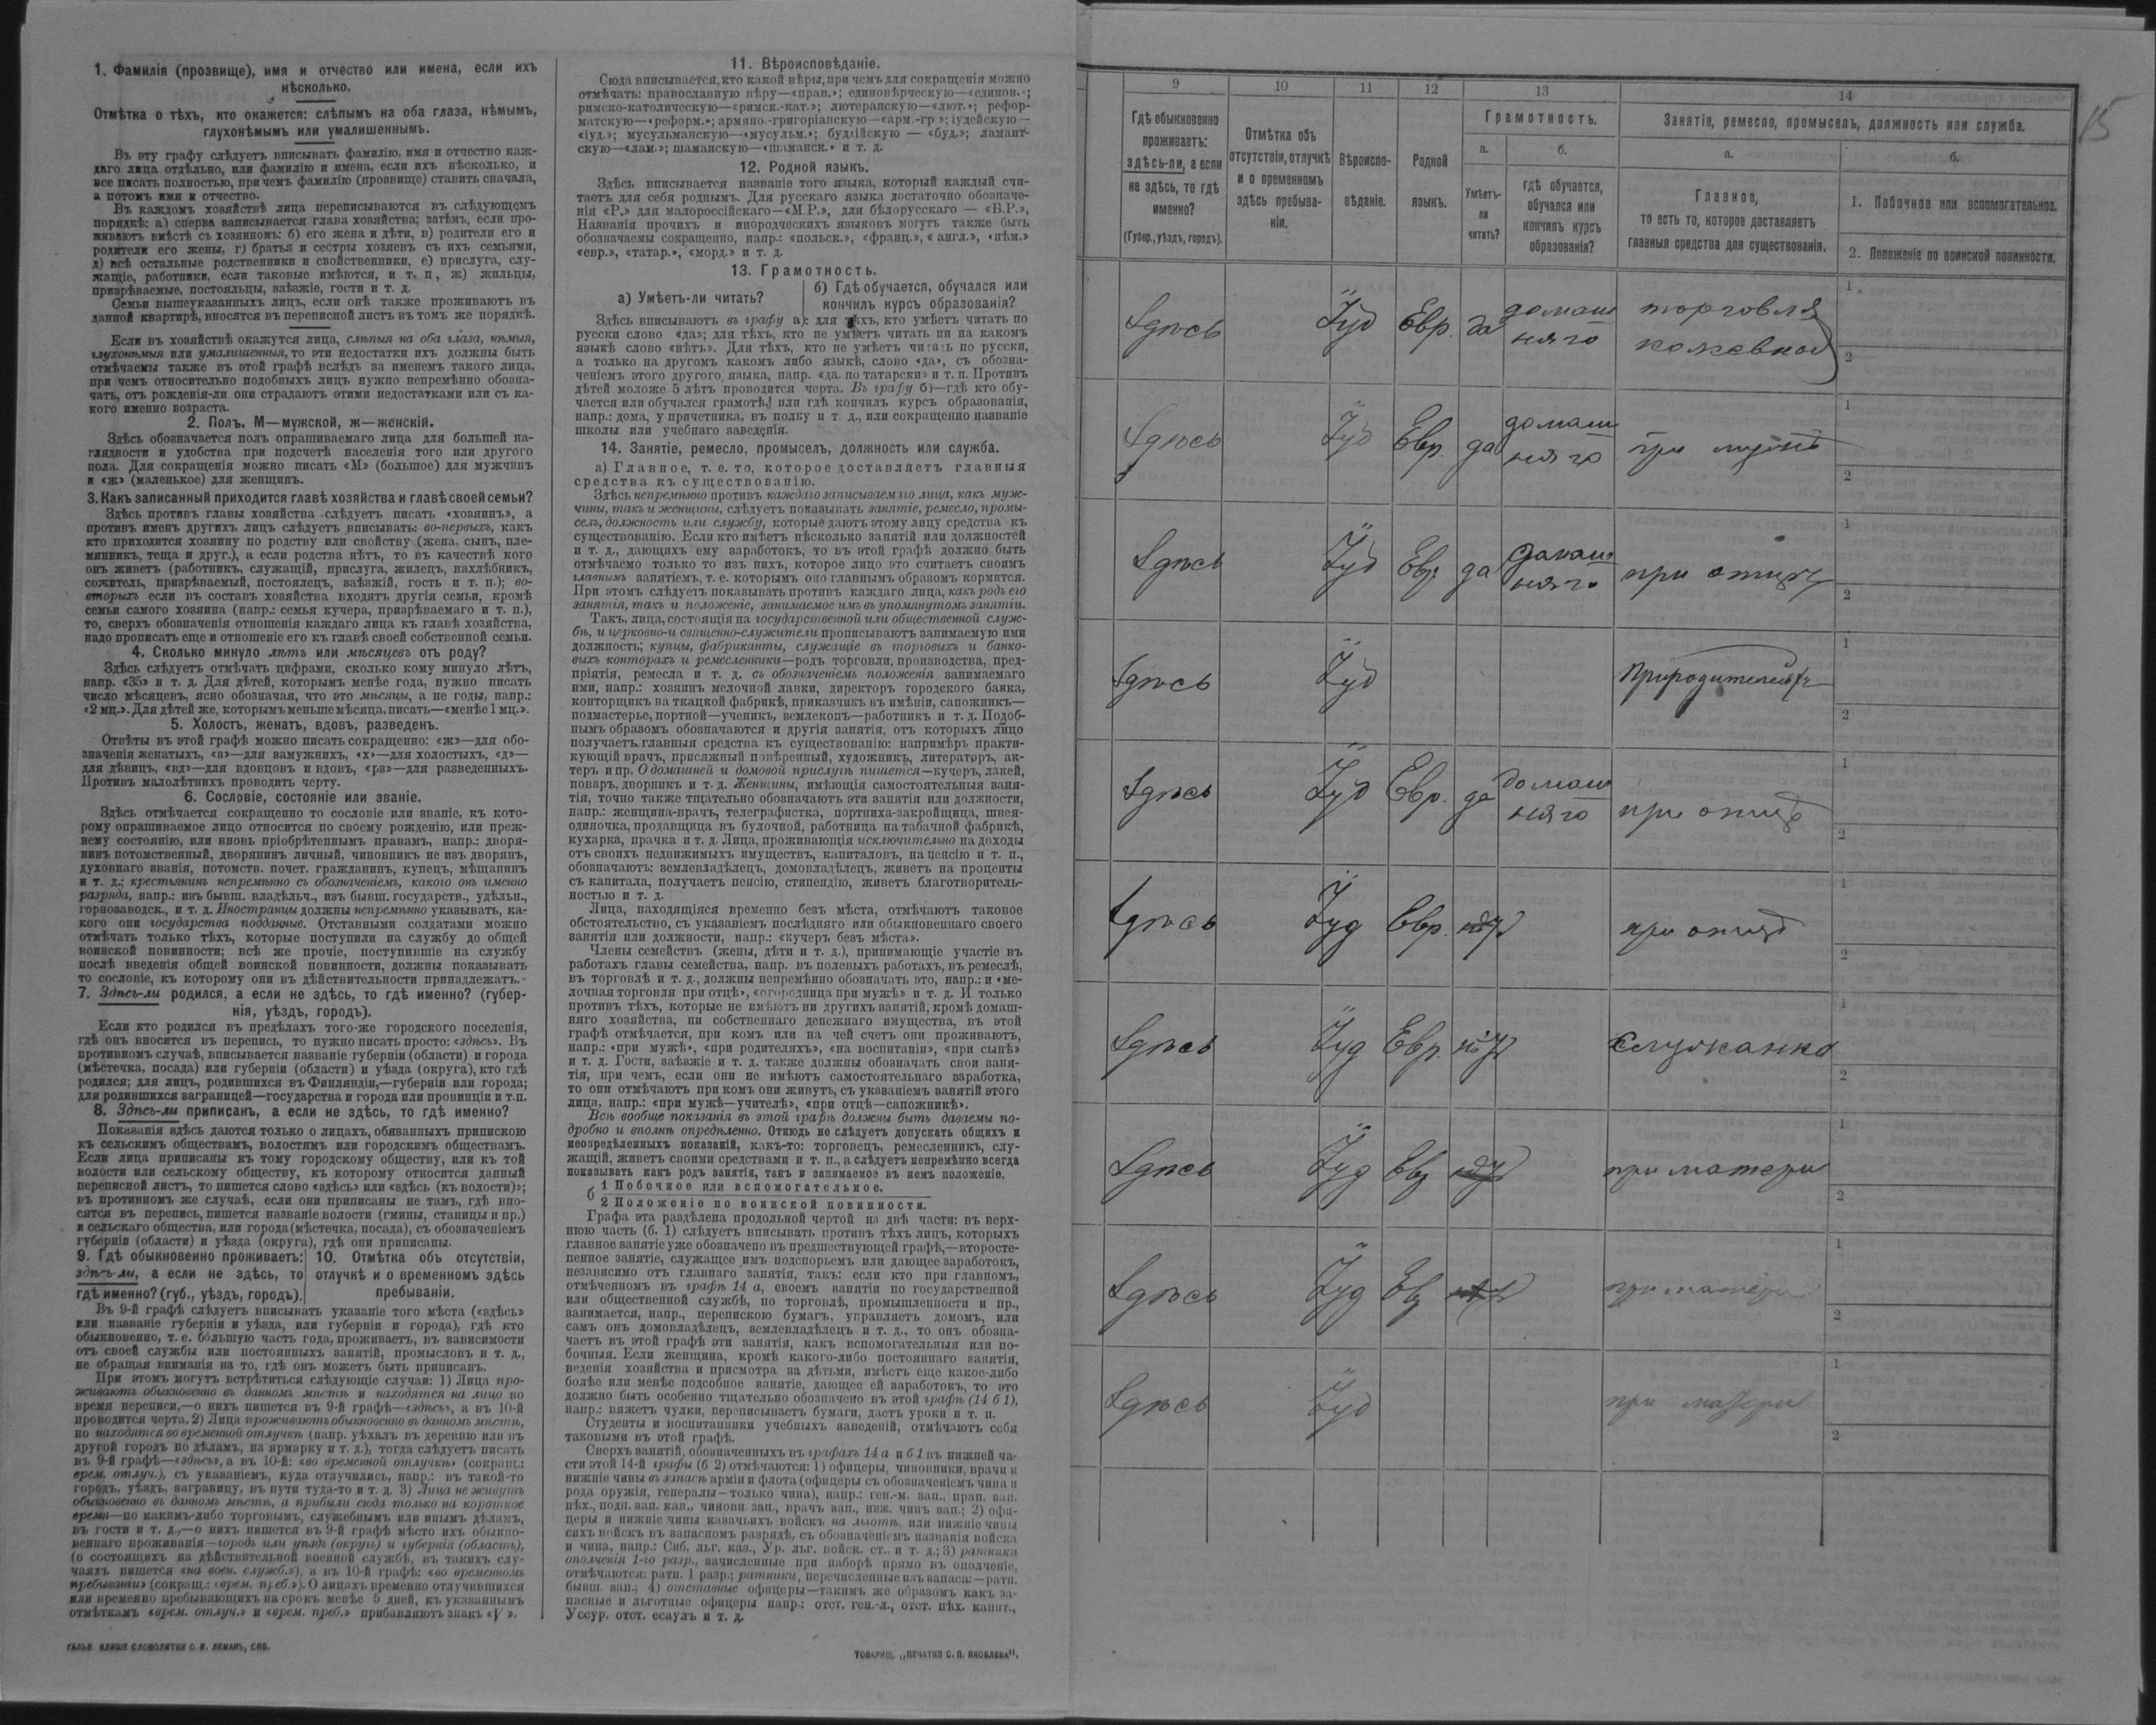 1. Фамилія (прозвище), имя и отчество или имена, если ихъ
нѣсколько.
Отмѣтка о тѣхъ, кто окажется: слѣпымъ на оба глаза, нѣмымъ,
глухонѣмымъ или умалишеннымъ.
Въ эту графу слѣдуетъ вписывать фамилію, имя и отчество каж-
даго лица отдѣльно, или фамилію и имена, если ихъ нѣсколько, и
все писать полностью, при чемъ фамилію (прозвище) ставить сначала,
а потомъ имя и отчество.
Въ каждомъ хозяйствѣ лица переписываются въ слѣдующемъ
порядкѣ: а) сперва записывается глава хозяйства; затѣмъ, если про-
живаютъ вмѣстѣ съ хозяиномъ: б) его жена и дѣти, в) родители его и
родители его жены, г) братья и сестры хозяевъ съ ихъ семьями,
д) всѣ остальные родственники и свойственники, е) прислуга, слу-
жащіе, работники, если таковые имѣются, и т. п, ж) жильцы,
призрѣваемые, постояльцы, заѣзжіе, гости и т. д.
Семьи вышеуказанныхъ лицъ, если онѣ также проживаютъ въ
данной квартирѣ, вносятся въ переписной листъ въ томъ же порядкѣ.
Если въ хозяйствѣ окажутся лица, слѣпыя на оба глаза, нѣмыя,
глухонѣмыя или умалишенныя, то эти недостатки ихъ должны быть
отмѣчаемы также въ этой графѣ вслѣдъ за именемъ такого лица,
при чемъ относительно подобныхъ лицъ нужно непремѣнно обозна-
чать, отъ рожденія-ли они страдаютъ этими недостатками или съ ка-
кого именно возраста.
2. Полъ. М—мужской, ж—женскій.
Здѣсь обозначается полъ опрашиваемаго лица для большей на-
глядности и удобства при подсчетѣ населенія того или другого
пола. Для сокращенія можно писать «М» (большое) для мужчинъ
и «ж» (маленькое) для женщинъ.
3. Какъ записанный приходится главѣ хозяйства и главѣ своей семьи?
Здѣсь противъ главы хозяйства слѣдуетъ писать «хозяинъ», а
противъ именъ другихъ лицъ слѣдуетъ вписывать: во-первыхъ, какъ
кто приходится хозяину по родству или свойству (жена, сынъ, пле-
мянникъ, теща и друг.), а если родства нѣтъ, то въ качествѣ кого
онъ живетъ (работникъ, служащій, прислуга, жилецъ, нахлѣбникъ,
сожитель, призрѣваемый, постоялецъ, заѣзжій, гость и т. п.); во-
вторыхъ если въ составъ хозяйства входятъ другія семьи, кромѣ
семьи самого хозяина (напр.: семья кучера, призрѣваемаго и т. п.),
то, сверхъ обозначенія отношенія каждаго лица къ главѣ хозяйства,
надо прописать еще и отношеніе его къ главѣ своей собственной семьи.
4. Сколько минуло лѣтъ или мѣсяцевъ отъ роду?
Здѣсь слѣдуетъ отмѣчать цифрами, сколько кому минуло лѣтъ,
напр. «35» и т. д. Для дѣтей, которымъ менѣе года, нужно писать
число мѣсяцевъ, ясно обозначая, что это мѣсяцы, а не годы, напр.:
«2 мц.». Для дѣтей же, которымъ меньше мѣсяца, писать—«менѣе 1 мц.».
5. Холостъ, женатъ, вдовъ, разведенъ.
Отвѣты въ этой графѣ можно писать сокращенно: «ж»—для обо-
значенія женатыхъ, «в»—для замужнихъ, «х»—для холостыхъ, «д»—
для дѣвицъ, «вд»—для вдовцовъ и вдовъ, «рз»—для разведенныхъ.
Противъ малолѣтнихъ проводить черту.
6. Сословіе, состояніе или званіе.
Здѣсь отмѣчается сокращенно то сословіе или званіе, къ кото-
рому опрашиваемое лицо относится по своему рожденію, или преж-
нему состоянію, или вновь пріобрѣтеннымъ правамъ, напр.: дворя-
нинъ потомственный, дворянинъ личный, чиновникъ не изъ дворянъ,
духовнаго званія, потомств. почет. гражданинъ, купецъ, мѣщанинъ
и т. д.; крестьянинъ непремѣнно съ обозначеніемъ, какого онъ именно
разряда, напр.: изъ бывш. владѣльч., изъ бывш. государств., удѣльн.,
горнозаводск., и т. д. Иностранцы должны непремѣнно указывать, ка-
кого они государства подданные. Отставными солдатами можно
отмѣчать только тѣхъ, которые поступили на службу до общей
воинской повинности; всѣ же прочіе, поступившіе на службу
послѣ введенія общей воинской повинности, должны показывать
то сословіе, къ которому они въ дѣйствительности принадлежатъ.
7. Здѣсь-ли родился, а если не здѣсь, то гдѣ именно? (губер-
нія, уѣздъ, городъ).
Если кто родился въ предѣлахъ того-же городского поселенія,
гдѣ онъ вносится въ перепись, то нужно писать просто: «здѣсь». Въ
противномъ случаѣ, вписывается названіе губерніи (области) и города
(мѣстечка, посада) или губерніи (области) и уѣзда (округа), кто гдѣ
родился; для лицъ, родившихся въ Финляндіи,—губерніи или города;
для родившихся заграницей—государства и города или провинціи и т.п.
8. Здѣсь-ли приписанъ, а если не здѣсь, то гдѣ именно?
Показанія здѣсь даются только о лицахъ, обязанныхъ припискою
къ сельскимъ обществамъ, волостямъ или городскимъ обществамъ.
Если лица приписаны къ тому городскому обществу, или къ той
волости или сельскому обществу, къ которому относится данный
переписной листъ, то пишется слово «здѣсь» или «здѣсь (къ волости)»;
въ противномъ же случаѣ, если они приписаны не тамъ, гдѣ вно-
сятся въ перепись, пишется названіе волости (гмины, станицы и пр.)
и сельскаго общества, или города (мѣстечка, посада), съ обозначеніемъ
губерніи (области) и уѣзда (округа), гдѣ они приписаны.
9. Гдѣ обыкновенно проживаетъ:
здѣсь-ли, а если не здѣсь, то
гдѣ именно? (губ., уѣздъ, городъ).
10. Отмѣтка объ отсутствіи,
отлучкѣ и о временномъ здѣсь
пребываніи.
Въ 9-й графѣ слѣдуетъ вписывать указаніе того мѣста («здѣсь»
или названіе губерніи и уѣзда, или губерніи и города), гдѣ кто
обыкновенно, т. е. большую часть года, проживаетъ, въ зависимости
отъ своей службы или постоянныхъ занятій, промысловъ и т. д.,
не обращая вниманія на то, гдѣ онъ можетъ быть приписанъ.
При этомъ могутъ встрѣтиться слѣдующіе случаи: 1) Лица про-
живаютъ обыкновенно въ данномъ мѣстѣ и находятся на лицо во
время переписи,—о нихъ пишется въ 9-й графѣ—«здѣсь», а въ 10-й
проводится черта. 2) Лица проживаютъ обыкновенно въ данномъ мѣстѣ,
но находятся во временной отлучкѣ (напр. уѣхалъ въ деревню или въ
другой городъ по дѣламъ, на ярмарку и т. д.), тогда слѣдуетъ писать
въ 9-й графѣ—«здѣсь», а въ 10-й: «во временной отлучкѣ» (сокращ.:
врем. отлуч.), съ указаніемъ, куда отлучились, напр.: въ такой-то
городъ, уѣздъ, заграницу, въ пути туда-то и т. д. 3) Лица не живутъ
обыкновенно въ данномъ мѣстѣ, а прибыли сюда только на короткое
время—по какимъ-либо торговымъ, служебнымъ или инымъ дѣламъ,
въ гости и т. д.,—о нихъ пишется въ 9-й графѣ мѣсто ихъ обыкно-
веннаго проживанія—городъ или уѣздъ (округъ) и губернія (область),
(о состоящихъ на дѣйствительной военной службѣ, въ такихъ слу-
чаяхъ пишется «на воен. служб.»), а въ 10-й графѣ: «во временномъ
пребываніи» (сокращ.: «врем. преб.»). О лицахъ временно отлучившихся
или временно пребывающихъ на срокъ менѣе 5 дней, къ указаннымъ
отмѣткамъ «врем. отлуч.» и «врем. преб.» прибавляютъ знакъ «V».
ГАЛЬВ. КЛИШЕ СЛОВОЛИТНИ О. И. ЛЕМАНЪ, СПБ.
11. Вѣроисповѣданіе.
Сюда вписывается, кто какой вѣры, при чемъ для сокращенія можно
отмѣчать: православную вѣру—«прав.»; единовѣрческую—«единов.»;
римско-католическую—«римск.-кат.»; лютеранскую—«лют.»; рефор-
матскую—«реформ.»; армяно-григоріанскую—«арм.-гр»; іудейскую—
«іуд.»; мусульманскую—«мусульм.»; буддійскую — «буд.»; ламаит-
скую—«лам.»; шаманскую—«шаманск.» и т. д.
12. Родной языкъ.
Здѣсь вписывается названіе того языка, который каждый счи-
таетъ для себя роднымъ. Для русскаго языка достаточно обозначе-
нія «Р.» для малороссійскаго—«М.Р.», для бѣлорусскаго — «Б.Р.»,
Названія прочихъ и инородческихъ языковъ могутъ также быть
обозначаемы сокращенно, напр.: «польск.», «франц.», «англ.», «нѣм.»
«евр.», «татар.», «морд.» и т. д.
13. Грамотность.
а) Умѣетъ-ли читать?
б) Гдѣ обучается, обучался или
кончилъ курсъ образованія?
Здѣсь вписываютъ въ графу а): для тѣхъ, кто умѣетъ читать по
русски слово «да»; для тѣхъ, кто не умѣетъ читать ни на какомъ
языкѣ слово «нѣтъ». Для тѣхъ, кто не умѣетъ читать по русски,
а только на другомъ какомъ либо языкѣ, слово «да», съ обозна-
ченіемъ этого другого языка, напр. «да. по татарски» и т. п. Противъ
дѣтей моложе 5 лѣтъ проводится черта. Въ графу б)—гдѣ кто обу-
чается или обучался грамотѣ, или гдѣ кончилъ курсъ образованія,
напр.: дома, у причетника, въ полку и т. д., или сокращенно названіе
школы или учебнаго заведенія.
14. Занятіе, ремесло, промыселъ, должность или служба.
а) Главное, т. е. то, которое доставляетъ главныя
средства къ существованію.
Здѣсь непремѣнно противъ каждаго записываемаго лица, какъ муж-
чины, такъ и женщины, слѣдуетъ показывать занятіе, ремесло, промы-
селъ, должность или службу, которые даютъ этому лицу средства къ
существованію. Если кто имѣетъ нѣсколько занятій или должностей
и т. д., дающихъ ему заработокъ, то въ этой графѣ должно быть
отмѣчаемо только то изъ нихъ, которое лицо это считаетъ своимъ
главнымъ занятіемъ, т. е. которымъ оно главнымъ образомъ кормится.
При этомъ слѣдуетъ показывать противъ каждаго лица, какъ родъ его
занятія, такъ и положеніе, занимаемое имъ въ упомянутомъ занятіи.
Такъ, лица, состоящія на государственной или общественной служ-
бѣ, и церковно-и священно-служители прописываютъ занимаемую ими
должность; купцы, фабриканты, служащіе въ торговыхъ и банко-
выхъ конторахъ и ремесленники—родъ торговли, производства, пред-
пріятія, ремесла и т. д. съ обозначеніемъ положенія занимаемаго
ими, напр.: хозяинъ мелочной лавки, директоръ городского банка,
конторщикъ на ткацкой фабрикѣ, приказчикъ въ имѣніи, сапожникъ—
подмастерье, портной—ученикъ, землекопъ—работникъ и т. д. Подоб-
нымъ образомъ обозначаются и другія занятія, отъ которыхъ лицо
получаетъ главныя средства къ существованію: напримѣръ практи-
кующій врачъ, присяжный повѣренный, художникъ, литераторъ, ак-
теръ и пр. О домашней и домовой прислугѣ пишется—кучеръ, лакей,
поваръ, дворникъ и т. д. Женщины, имѣющія самостоятельныя заня-
тія, точно также тщательно обозначаютъ эти занятія или должности,
напр.: женщина-врачъ, телеграфистка, портниха-закройщица, швея-
одиночка, продавщица въ булочной, работница на табачной фабрикѣ,
кухарка, прачка и т. д. Лица, проживающія исключительно на доходы
отъ своихъ недвижимыхъ имуществъ, капиталовъ, на пенсію и т. п.,
обозначаютъ: землевладѣлецъ, домовладѣлецъ, живетъ на проценты
съ капитала, получаетъ пенсію, стипендію, живетъ благотворитель-
ностью и т. д.
Лица, находящіяся временно безъ мѣста, отмѣчаютъ таковое
обстоятельство, съ указаніемъ послѣдняго или обыкновеннаго своего
занятія или должности, напр.: «кучеръ безъ мѣста».
Члены семействъ (жены, дѣти и т. д.), принимающіе участіе въ
работахъ главы семейства, напр. въ полевыхъ работахъ, въ ремеслѣ,
въ торговлѣ и т. д., должны непремѣнно обозначать это, напр.: и «ме-
лочная торговля при отцѣ», «огородница при мужѣ» и т. д. И только
противъ тѣхъ, которые не имѣютъ ни другихъ занятій, кромѣ домаш-
няго хозяйства, ни собственнаго денежнаго имущества, въ этой
графѣ отмѣчается, при комъ или на чей счетъ они проживаютъ,
напр.: «при мужѣ», «при родителяхъ», «на воспитаніи», «при сынѣ»
и т. д. Гости, заѣзжіе и т. д. также должны обозначать свои заня-
тія, при чемъ, если они не имѣютъ самостоятельнаго заработка,
то они отмѣчаютъ при комъ они живутъ, съ указаніемъ занятій этого
лица, напр.: «при мужѣ—учителѣ», «при отцѣ—сапожникѣ».
Всѣ вообще показанія въ этой графѣ должны быть даваемы по-
дробно и вполнѣ опредѣленно. Отнюдь не слѣдуетъ допускать общихъ и
неопредѣленныхъ показаній, какъ-то: торговецъ, ремесленникъ, слу-
жащій, живетъ своими средствами и т. п., а слѣдуетъ непремѣнно всегда
показывать какъ родъ занятія, такъ и занимаемое въ немъ положеніе.
б 1 Побочное или вспомогательное.
2 Положеніе по воинской повинности.
Графа эта раздѣлена продольной чертой на двѣ части: въ верх-
нюю часть (б. 1) слѣдуетъ вписывать противъ тѣхъ лицъ, которыхъ
главное занятіе уже обозначено въ предшествующей графѣ,—второсте-
пенное занятіе, служащее имъ подспорьемъ или дающее заработокъ,
независимо отъ главнаго занятія, такъ: если кто при главномъ,
отмѣченномъ въ графѣ 14 а, своемъ занятіи по государственной
или общественной службѣ, по торговлѣ, промышленности и пр.,
занимается, напр., перепискою бумагъ, управляетъ домомъ, или
самъ онъ домовладѣлецъ, землевладѣлецъ и т. д., то онъ обозна-
чаетъ въ этой графѣ эти занятія, какъ вспомогательныя или по-
бочныя. Если женщина, кромѣ какого-либо постояннаго занятія,
веденія хозяйства и присмотра за дѣтьми, имѣетъ еще какое-либо
болѣе или менѣе подсобное занятіе, дающее ей заработокъ, то это
должно быть особенно тщательно обозначено въ этой графѣ (14 б 1),
напр.: вяжетъ чулки, переписываетъ бумаги, даетъ уроки и т. п.
Студенты и воспитанники учебныхъ заведеній, отмѣчаютъ себя
таковыми въ этой графѣ.
Сверхъ занятій, обозначенныхъ въ графахъ 14 а и б 1 въ нижней ча-
сти этой 14-й графы (б 2) отмѣчаются: 1) офицеры, чиновники, врачи и
нижніе чины въ запасѣ арміи и флота (офицеры съ обозначеніемъ чина и
рода оружія, генералы—только чина), напр.: ген.-м. зап., прап. зап.
пѣх., подп. зап. кав., чиновн. зап., врачъ зап., ниж. чинъ зап.; 2) офи-
церы и нижніе чины казачьихъ войскъ на льготѣ, или нижніе чины
сихъ войскъ въ запасномъ разрядѣ, съ обозначеніемъ названія войска
и чина, напр.: Сиб. льг. каз., Ур. льг. войск. ст. и т. д.; 3) ратники
ополченія 1-го разр., зачисленные при наборѣ прямо въ ополченіе,
отмѣчаются: ратн. 1 разр.; ратники, перечисленные изъ запаса:—ратн.
бывш. зап.; 4) отставные офицеры—такимъ же образомъ какъ за-
пасные и льготные офицеры напр.: отст. ген.-л., отст. пѣх. капит.,
Уссур. отст. есаулъ и т. д.
ТОВАРИЩ. „ПЕЧАТНЯ С. П. ЯКОВЛЕВА“.
15
9 10 11 12 13 14
Гдѣ обыкновенно
проживаетъ:
здѣсь-ли, а если
не здѣсь, то гдѣ
именно?
(Губер., уѣздъ, городъ).
Отмѣтка объ
отсутствіи, отлучкѣ
и о временномъ
здѣсь пребыва-
ніи.
Вѣроиспо-
вѣданіе.
Родной
языкъ.
Грамотность.
а.
Умѣетъ-
ли
читать?
б.
гдѣ обучается,
обучался или
кончилъ курсъ
образованія?
Занятіе, ремесло, промыселъ, должность или служба.
а.
Главное,
то есть то, которое доставляетъ
главныя средства для существованія.
б.
1. Побочное или вспомогательное.
2. Положеніе по воинской повинности.
Здѣсь Іуд Евр. да домаш няго торговля кожевной 1 2
Здѣсь Іуд Евр. да домаш няго при мужѣ 1 2
Здѣсь Іуд Евр. да домаш няго при отцѣ 1 2
Здѣсь Іуд При родителяхъ 1 2
Здѣсь Іуд Евр. да домаш няго при отцѣ 1 2
Здѣсь Іуд Евр. нѣтъ при отцѣ 1 2
Здѣсь Іуд Евр. нѣтъ служанка 1 2
Здѣсь Іуд Евр нѣтъ при матери 1 2
Здѣсь Іуд Евр нѣтъ при матери 1 2
Здѣсь Іуд при матери 1 2